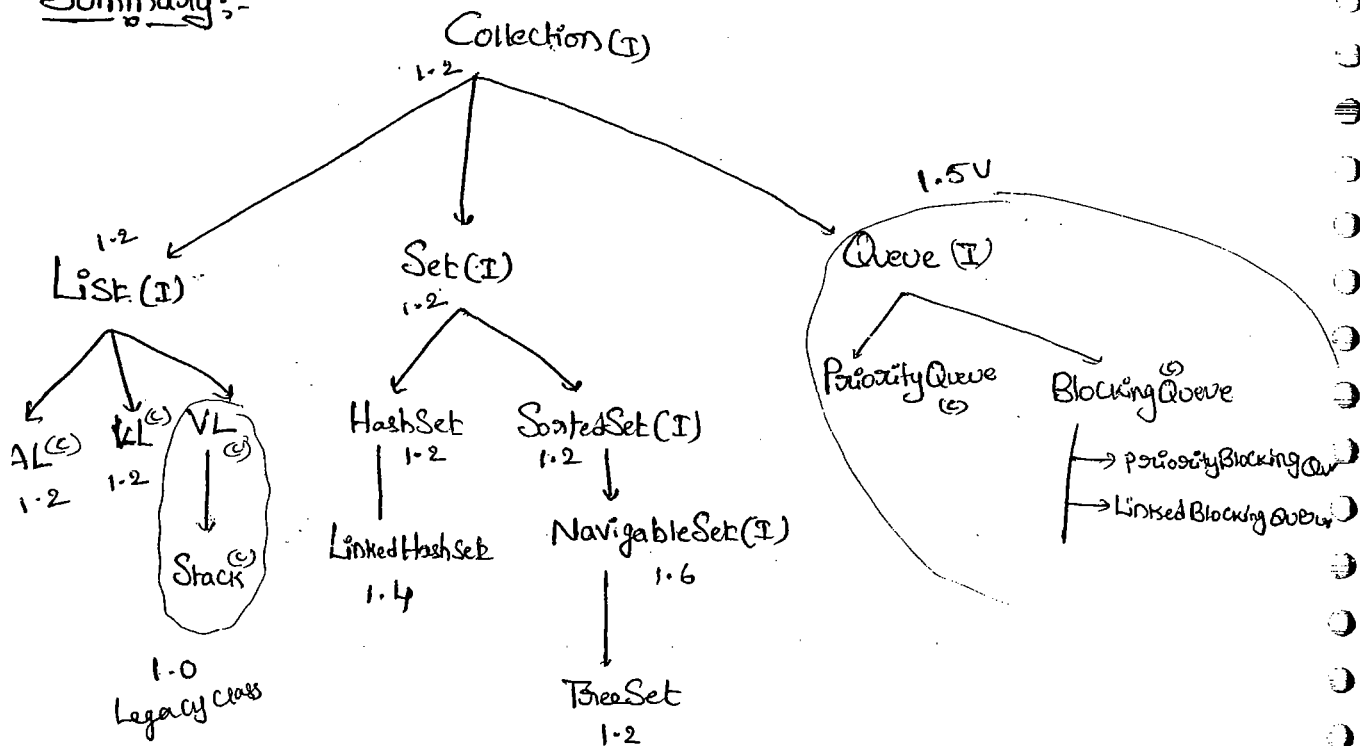 Summary :-
Collection (I)
1.2
1.5V
1.2
List (I)
Set (I)
1.2
Queue (I)
AL (C)
1.2
LL (C)
1.2
VL
(C)
Stack (C)
1.0
Legacy class
HashSet
1.2
LinkedHashSet
1.4
SortedSet (I)
1.2
NavigableSet (I)
1.6
TreeSet
1.2
PriorityQueue
(C)
BlockingQueue (C)
PriorityBlockingQu
LinkedBlockingQueue